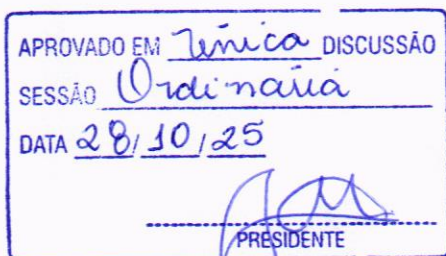 APROVADO EM Única DISCUSSÃO
SESSÃO Ordinaria
DATA 28/10/25
PRESIDENTE